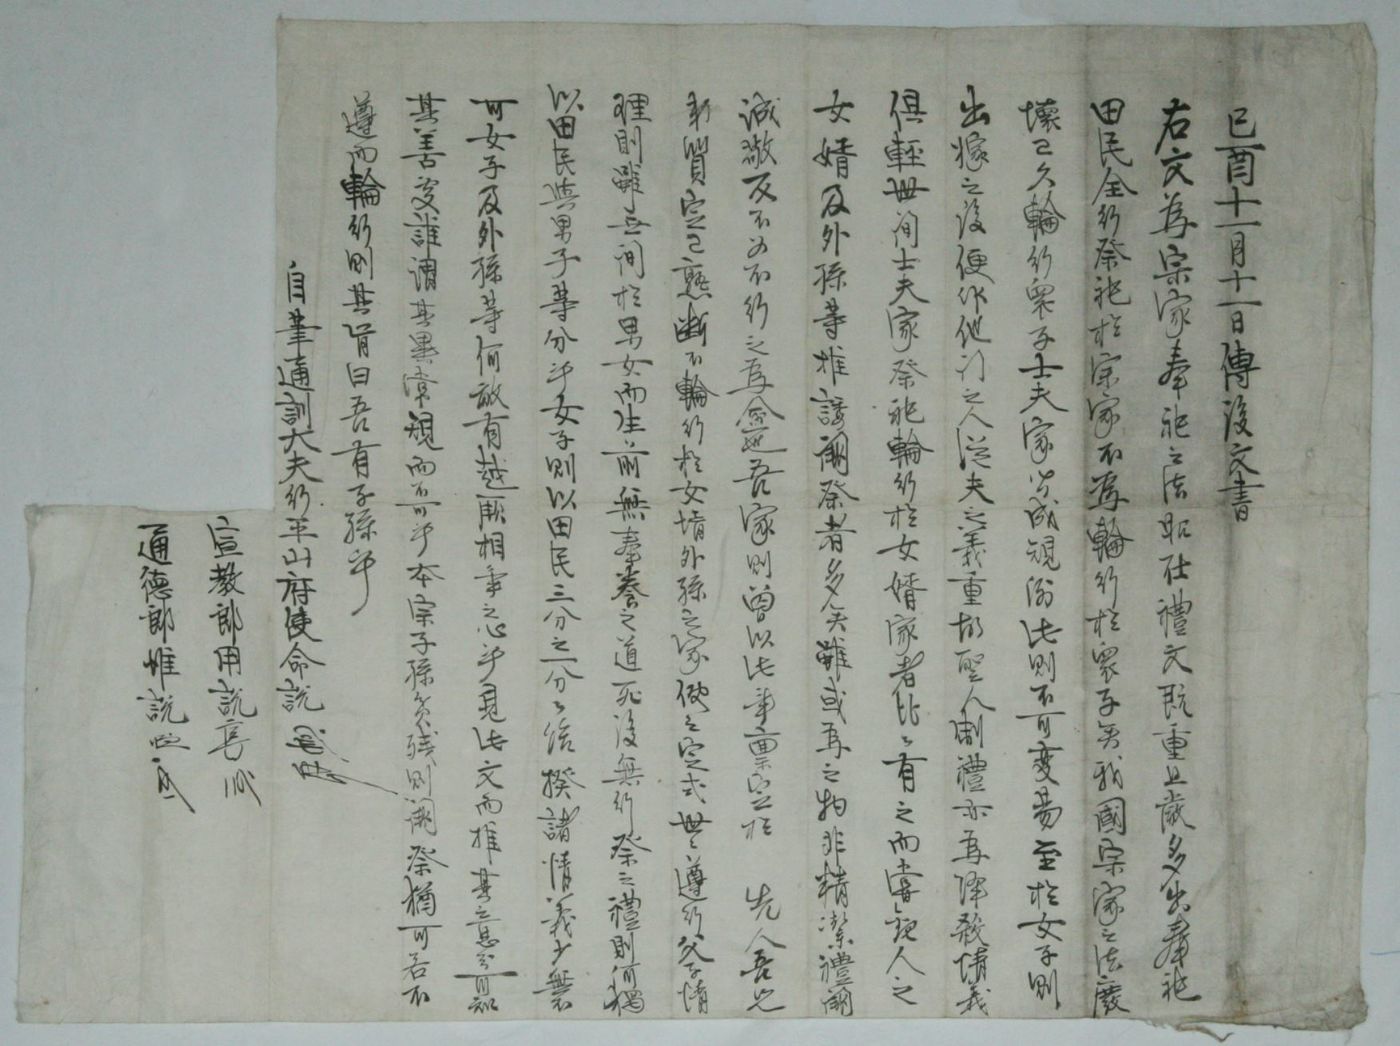 己酉十一月十一日傳後文書
右文爲宗家奉祀之法昭在禮文旣重且嚴多出奉祀
田民全行祭祀於宗家不爲輪行於衆子矣我國宗家之法廢
壞已久輪行衆子士夫家皆成規例此則不可變易至於女子則
出嫁之後便作他門之人從夫之義重故聖人制禮亦爲降殺情義
俱輕世間士夫家祭祀輪行於女婿家者比比有之而嘗觀人之
女婿及外孫等推諉闕祭者多矣雖或爲之物非精潔禮闕
誠敬反不如不行之爲愈也吾家則曾以此事稟定於 先人吾兄
弟質定已熟斷不輪行於女婿外孫之家使之定式世世遵行父子情
理則雖無間於男女而生前無奉養之道死後無行祭之禮則何獨
以田民與男子等分乎女子則以田民三分之一分分給揆諸情義少無
可女子及外孫等何敢有越厥相爭之心乎見此文而推其意可知
其善處誰謂其異常規而不可乎本宗子孫貧殘則闕祭猶可若不
遵而輪行則其肯曰吾有子孫乎
自筆通訓大夫行平山府使命說
宣敎郎用說
通德郎惟說